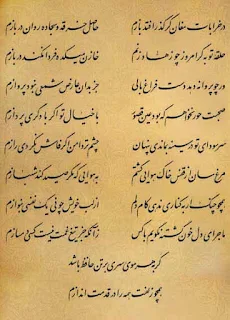 در خرابات مغان گر گذر افتد بازم حاصل خرقه و سجاده روان در بازم
حلقه توبه گر امروز چو زهاد زنم خازن میکده فردا نکند در بازم
ور چو پروانه دهد دست فراغ بالی جز بدان عارض شمعی نبود پروازم
صحبت حور نخواهم که بود عین قصور با خیال تو اگر با دگری پردازم
سر سودای تو در سینه بماندی پنهان چشم تر دامن اگر فاش نکردی رازم
مرغ سان از قفس خاک هوایی گشتم به هوایی که مگر صید کند شهبازم
همچو چنگ ار به کناری ندهی کام دلم از لب خویش چو نی یک نفسی بنوازم
ماجرای دل خون گشته نگویم با کس زآنکه جز تیغ غمت نیست کسی دمسازم
گر به هر موی سری بر تن حافظ باشد
همچو زلفت همه را در قدمت اندازم